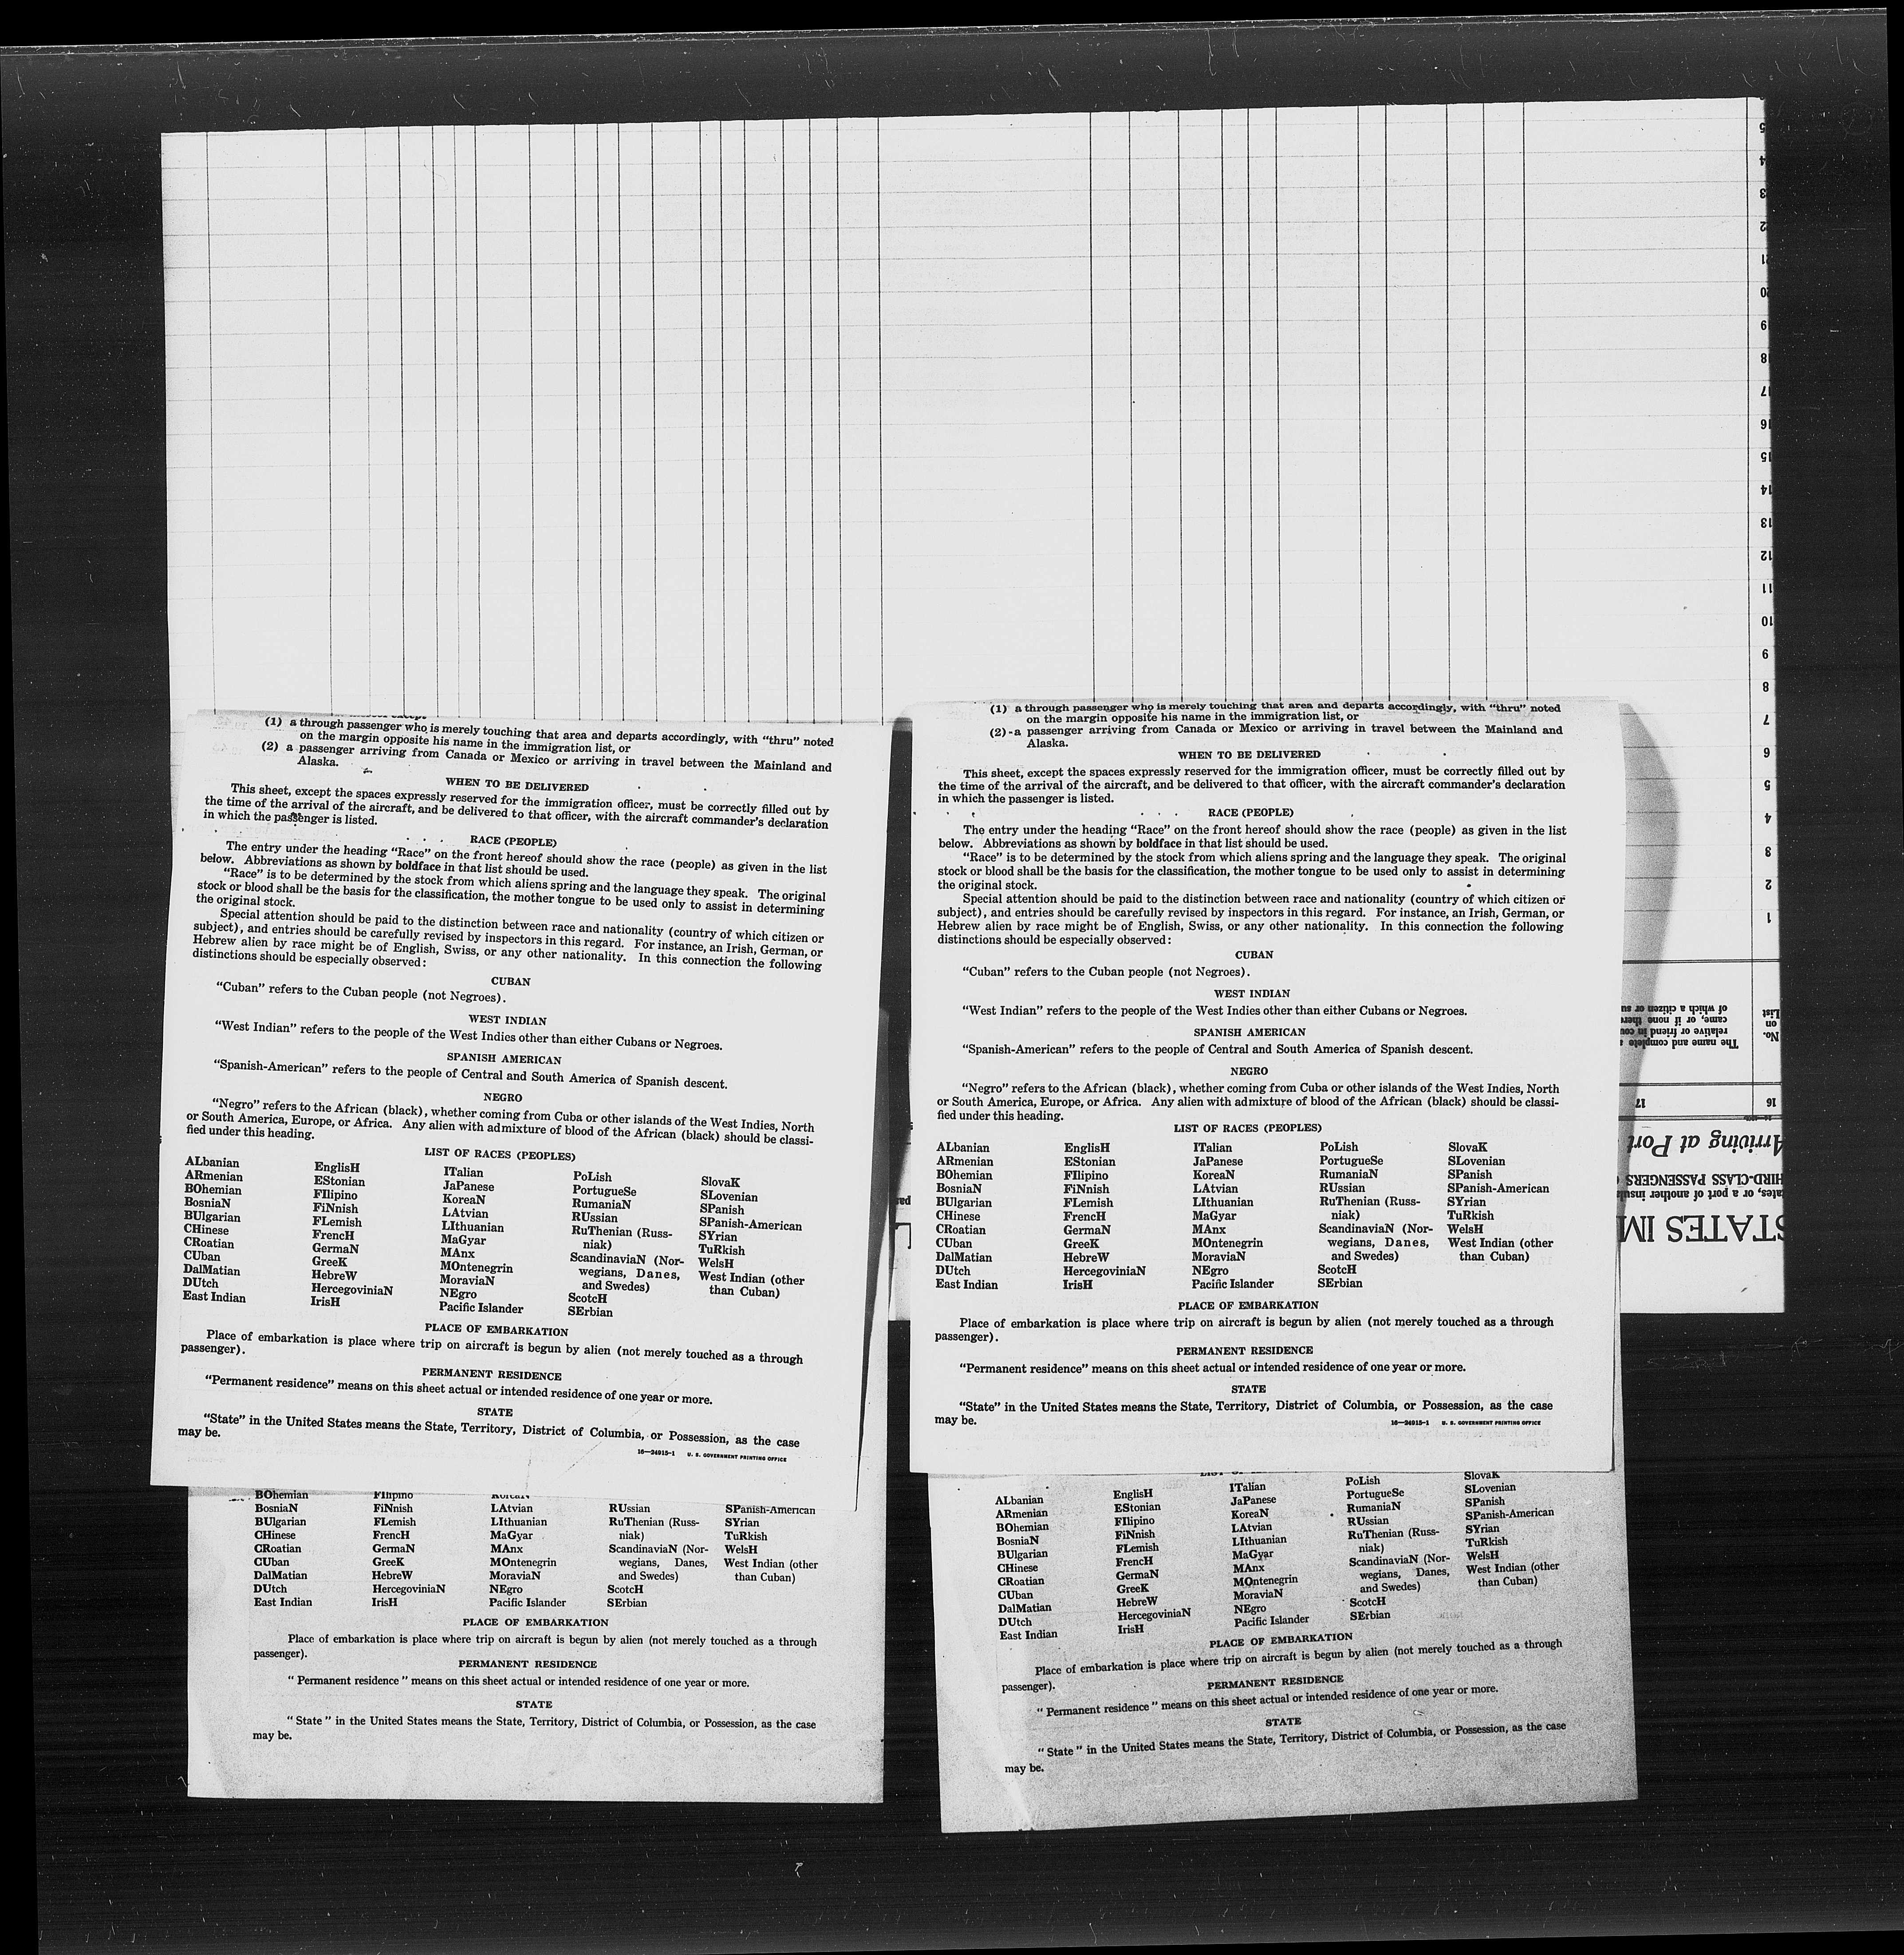 (1) a through passenger who is merely touching that area and departs accordingly, with “thru” noted
on the margin opposite his name in the immigration list, or
(2) a passenger arriving from Canada or Mexico or arriving in travel between the Mainland and
Alaska.
WHEN TO BE DELIVERED
This sheet, except the spaces expressly reserved for the immigration officer, must be correctly filled out by
the time of the arrival of the aircraft, and be delivered to that officer, with the aircraft commander’s declaration
in which the passenger is listed.
RACE (PEOPLE)
The entry under the heading “Race” on the front hereof should show the race (people) as given in the list
below. Abbreviations as shown by boldface in that list should be used.
“Race” is to be determined by the stock from which aliens spring and the language they speak. The original
stock or blood shall be the basis for the classification, the mother tongue to be used only to assist in determining
the original stock.
Special attention should be paid to the distinction between race and nationality (country of which citizen or
subject), and entries should be carefully revised by inspectors in this regard. For instance, an Irish, German, or
Hebrew alien by race might be of English, Swiss, or any other nationality. In this connection the following
distinctions should be especially observed:
CUBAN
“Cuban” refers to the Cuban people (not Negroes).
WEST INDIAN
“West Indian” refers to the people of the West Indies other than either Cubans or Negroes.
SPANISH AMERICAN
“Spanish-American” refers to the people of Central and South America of Spanish descent.
NEGRO
“Negro” refers to the African (black), whether coming from Cuba or other islands of the West Indies, North
or South America, Europe, or Africa. Any alien with admixture of blood of the African (black) should be classi-
fied under this heading.
LIST OF RACES (PEOPLES)
ALbanian
ARmenian
BOhemian
BosniaN
BUlgarian
CHinese
CRoatian
CUban
DalMatian
DUtch
East Indian
EnglisH
EStonian
FIlipino
FiNnish
FLemish
FrencH
GermaN
GreeK
HebreW
HercegoviniaN
IrisH
ITalian
JaPanese
KoreaN
LAtvian
LIthuanian
MaGyar
MAnx
MOntenegrin
MoraviaN
NEgro
Pacific Islander
PoLish
PortugueSe
RumaniaN
RUssian
RuThenian (Russ-
niak)
ScandinaviaN (Nor-
wegians, Danes,
and Swedes)
ScotcH
SErbian
SlovaK
SLovenian
SPanish
SPanish-American
SYrian
TuRkish
WelsH
West Indian (other
than Cuban)
PLACE OF EMBARKATION
Place of embarkation is place where trip on aircraft is begun by alien (not merely touched as a through
passenger).
PERMANENT RESIDENCE
“Permanent residence” means on this sheet actual or intended residence of one year or more.
STATE
“State” in the United States means the State, Territory, District of Columbia, or Possession, as the case
may be.
16—24915-1 U. S. GOVERNMENT PRINTING OFFICE
BOhemian
BosniaN
BUlgarian
CHinese
CRoatian
CUban
DalMatian
DUtch
East Indian
FIlipino
FiNnish
FLemish
FrencH
GermaN
GreeK
HebreW
HercegoviniaN
IrisH
LAtvian
LIthuanian
MaGyar
MAnx
MOntenegrin
MoraviaN
NEgro
Pacific Islander
RUssian
RuThenian (Russ-
niak)
ScandinaviaN (Nor-
wegians, Danes,
and Swedes)
ScotcH
SErbian
SPanish-American
SYrian
TuRkish
WelsH
West Indian (other
than Cuban)
PLACE OF EMBARKATION
Place of embarkation is place where trip on aircraft is begun by alien (not merely touched as a through
passenger).
PERMANENT RESIDENCE
“ Permanent residence ” means on this sheet actual or intended residence of one year or more.
STATE
“ State ” in the United States means the State, Territory, District of Columbia, or Possession, as the case
may be.
(1) a through passenger who is merely touching that area and departs accordingly, with “thru” noted
on the margin opposite his name in the immigration list, or
(2) a passenger arriving from Canada or Mexico or arriving in travel between the Mainland and
Alaska.
WHEN TO BE DELIVERED
This sheet, except the spaces expressly reserved for the immigration officer, must be correctly filled out by
the time of the arrival of the aircraft, and be delivered to that officer, with the aircraft commander’s declaration
in which the passenger is listed.
RACE (PEOPLE)
The entry under the heading “Race” on the front hereof should show the race (people) as given in the list
below. Abbreviations as shown by boldface in that list should be used.
“Race” is to be determined by the stock from which aliens spring and the language they speak. The original
stock or blood shall be the basis for the classification, the mother tongue to be used only to assist in determining
the original stock.
Special attention should be paid to the distinction between race and nationality (country of which citizen or
subject), and entries should be carefully revised by inspectors in this regard. For instance, an Irish, German, or
Hebrew alien by race might be of English, Swiss, or any other nationality. In this connection the following
distinctions should be especially observed:
CUBAN
“Cuban” refers to the Cuban people (not Negroes).
WEST INDIAN
“West Indian” refers to the people of the West Indies other than either Cubans or Negroes.
SPANISH AMERICAN
“Spanish-American” refers to the people of Central and South America of Spanish descent.
NEGRO
“Negro” refers to the African (black), whether coming from Cuba or other islands of the West Indies, North
or South America, Europe, or Africa. Any alien with admixture of blood of the African (black) should be classi-
fied under this heading.
LIST OF RACES (PEOPLES)
ALbanian
ARmenian
BOhemian
BosniaN
BUlgarian
CHinese
CRoatian
CUban
DalMatian
DUtch
East Indian
EnglisH
EStonian
FIlipino
FiNnish
FLemish
FrencH
GermaN
GreeK
HebreW
HercegoviniaN
IrisH
ITalian
JaPanese
KoreaN
LAtvian
LIthuanian
MaGyar
MAnx
MOntenegrin
MoraviaN
NEgro
Pacific Islander
PoLish
PortugueSe
RumaniaN
RUssian
RuThenian (Russ-
niak)
ScandinaviaN (Nor-
wegians, Danes,
and Swedes)
ScotcH
SErbian
SlovaK
SLovenian
SPanish
SPanish-American
SYrian
TuRkish
WelsH
West Indian (other
than Cuban)
PLACE OF EMBARKATION
Place of embarkation is place where trip on aircraft is begun by alien (not merely touched as a through
passenger).
PERMANENT RESIDENCE
“Permanent residence” means on this sheet actual or intended residence of one year or more.
STATE
“State” in the United States means the State, Territory, District of Columbia, or Possession, as the case
may be.
16—24915-1 U. S. GOVERNMENT PRINTING OFFICE
ALbanian
ARmenian
BOhemian
BosniaN
BUlgarian
CHinese
CRoatian
CUban
DalMatian
DUtch
East Indian
EnglisH
EStonian
FIlipino
FiNnish
FLemish
FrencH
GermaN
GreeK
HebreW
HercegoviniaN
IrisH
ITalian
JaPanese
KoreaN
LAtvian
LIthuanian
MaGyar
MAnx
MOntenegrin
MoraviaN
NEgro
Pacific Islander
PoLish
PortugueSe
RumaniaN
RUssian
RuThenian (Russ-
niak)
ScandinaviaN (Nor-
wegians, Danes,
and Swedes)
ScotcH
SErbian
SlovaK
SLovenian
SPanish
SPanish-American
SYrian
TuRkish
WelsH
West Indian (other
than Cuban)
PLACE OF EMBARKATION
Place of embarkation is place where trip on aircraft is begun by alien (not merely touched as a through
passenger).
PERMANENT RESIDENCE
“ Permanent residence ” means on this sheet actual or intended residence of one year or more.
STATE
“ State ” in the United States means the State, Territory, District of Columbia, or Possession, as the case
may be.
STATES IM
ates, or a port of another insul
HIRD-CLASS PASSENGERS
Arriving at Port
16
17
No.
on
List
The name and complete
relative or friend in cou
came, or if none there
of which a citizen or su
1
2
3
4
5
6
7
8
9
10
11
12
13
14
15
16
17
18
19
20
21
22
23
24
25